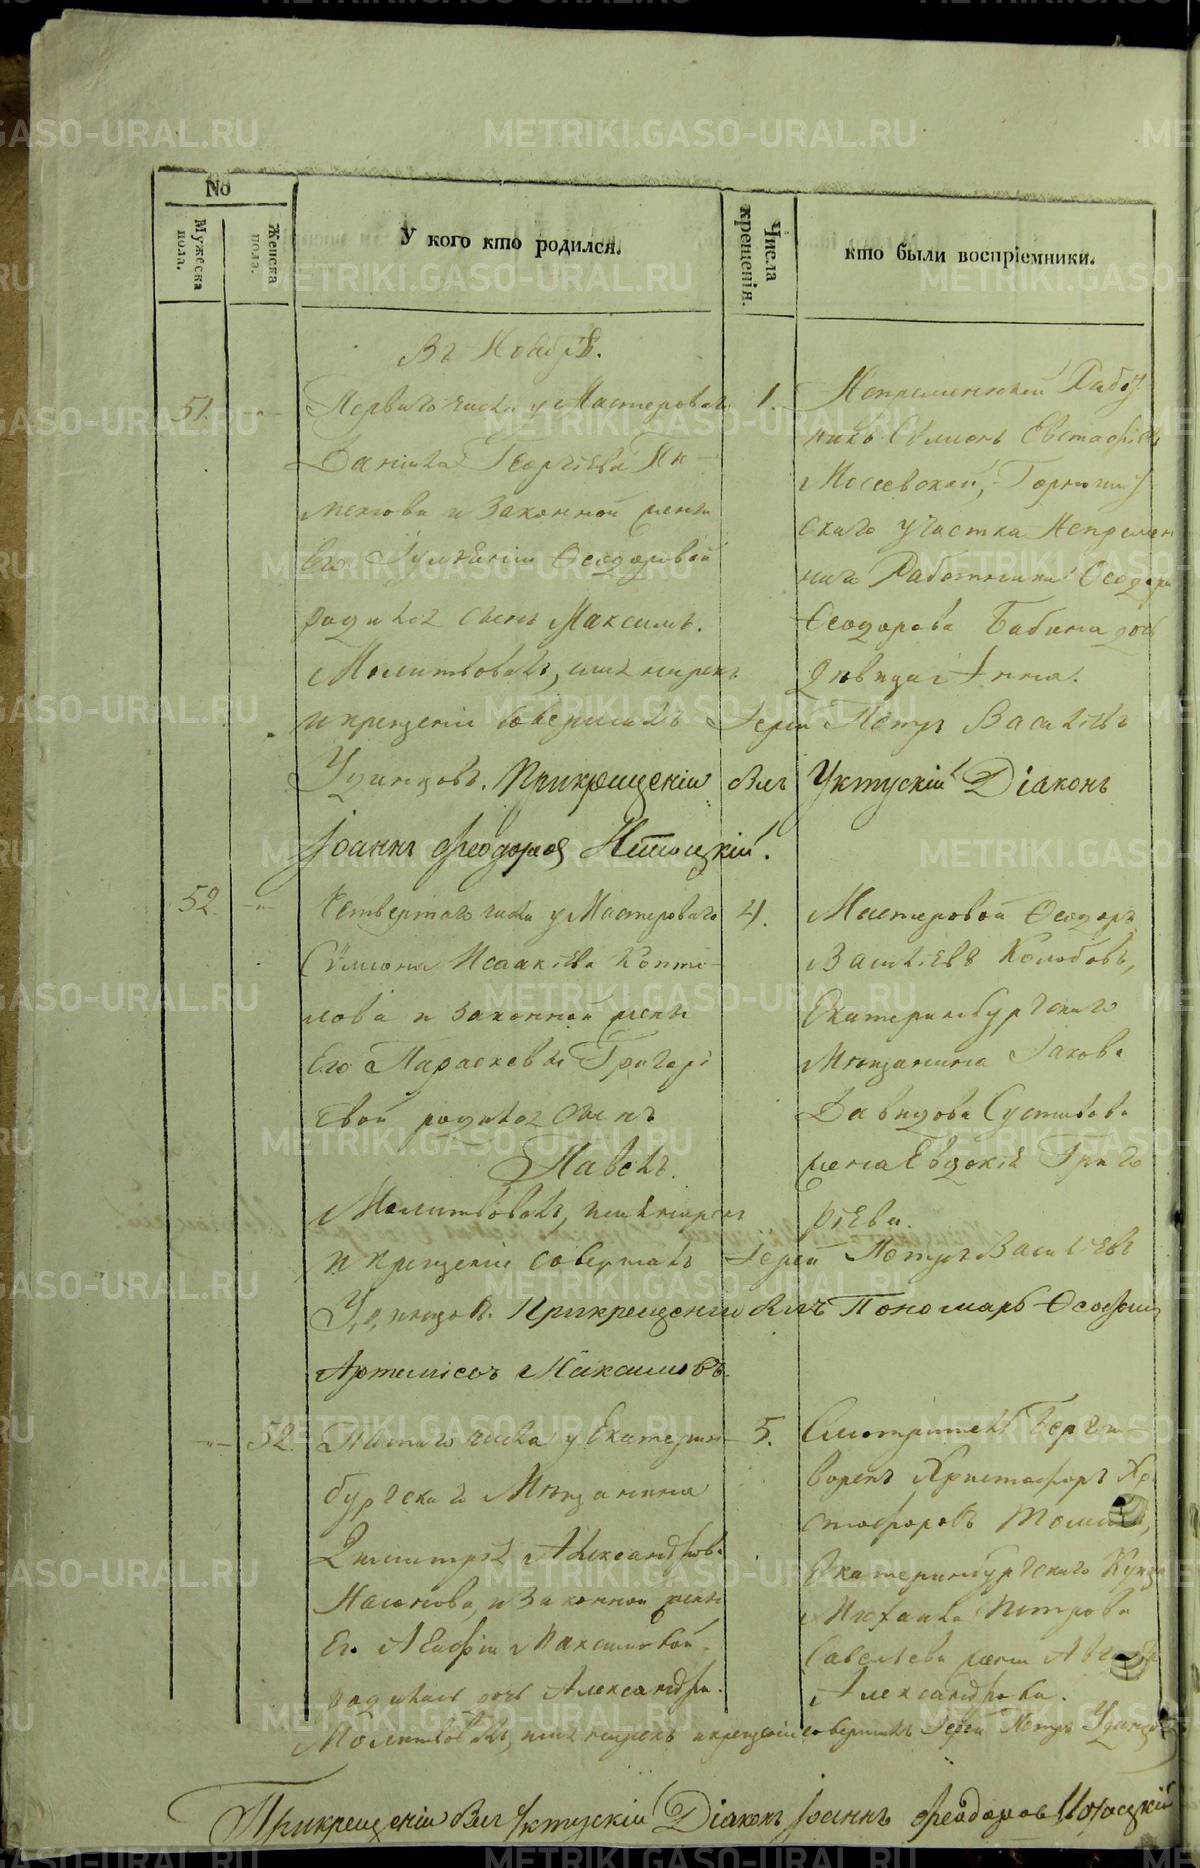 No
Мужеска пола.
Женска пола.
У кого кто родился.
Числа крещенія.
кто были воспріемники.
Въ Ноябрѣ.
51. Перваго числа у Мастероваго
Даніила Георгіева
и законной жены
Его Ѳеодоровой
родился сынъ Максимъ.
Молитвовалъ, имя нарекъ
и крещеніе совершилъ Іерей Петръ Васильевъ
Удинцовъ. Прикрещеніи былъ Уктускій Діаконъ
Іоаннъ Феодоровъ
1.
Непремѣнный Работ
никъ Симеонъ Евстафіевъ
Мосеевской,
скаго участка Непремѣн
наго Работника Ѳеодора
Ѳеодорова Бабина дочь
дѣвица Анна.
52. Четвертаго числа у Мастероваго
Симеона Исаакіева Копти-
лова и законной жены
Его Параскевы Григорі
евой родился сынъ
Павелъ.
Молитвовалъ, имя нарекъ
и крещеніе совершилъ Іерей Петръ Васильевъ
Удинцовъ. Прикрещеніи былъ Пономарь
Артемьевъ Максимовъ.
4.
Мастеровой Ѳеодоръ
Васильевъ Колобовъ,
Екатеринбургскаго
Мѣщанина Іакова
Давидова
жена Евдокія Григо
рьева.
52. Пятаго числа у Екатерин-
бургскаго Мѣщанина
Димитрія Александрова
Насонова, и законной жены
Его Агафіи Максимовой
родилась дочь Александра.
Молитвовалъ, имя нарекъ и крещеніе совершилъ Іерей Петръ Удинцовъ
5.
Смотритель
Христофоръ Хри
стофоровъ
Екатеринбургскаго Купца
Михаила Петрова
Савельева жена
Александрова.
Прикрещеніи былъ Уктускій Діаконъ Іоаннъ Феодоровъ
METRIKI.GASO-URAL.RU